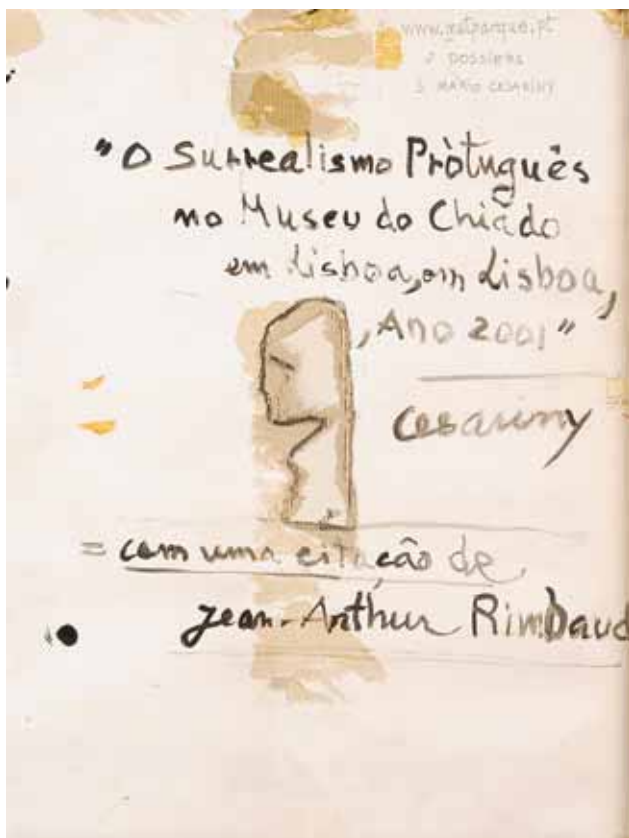 www.netparque.pt
DOSSIERS
MÁRIO CESARINY
"O Surrealismo Pròtuguês
no Museu do Chiado
em Lisboa, em Lisboa,
, Ano 2001"
Cesariny
= com uma citação de
Jean-Arthur Rimbaud